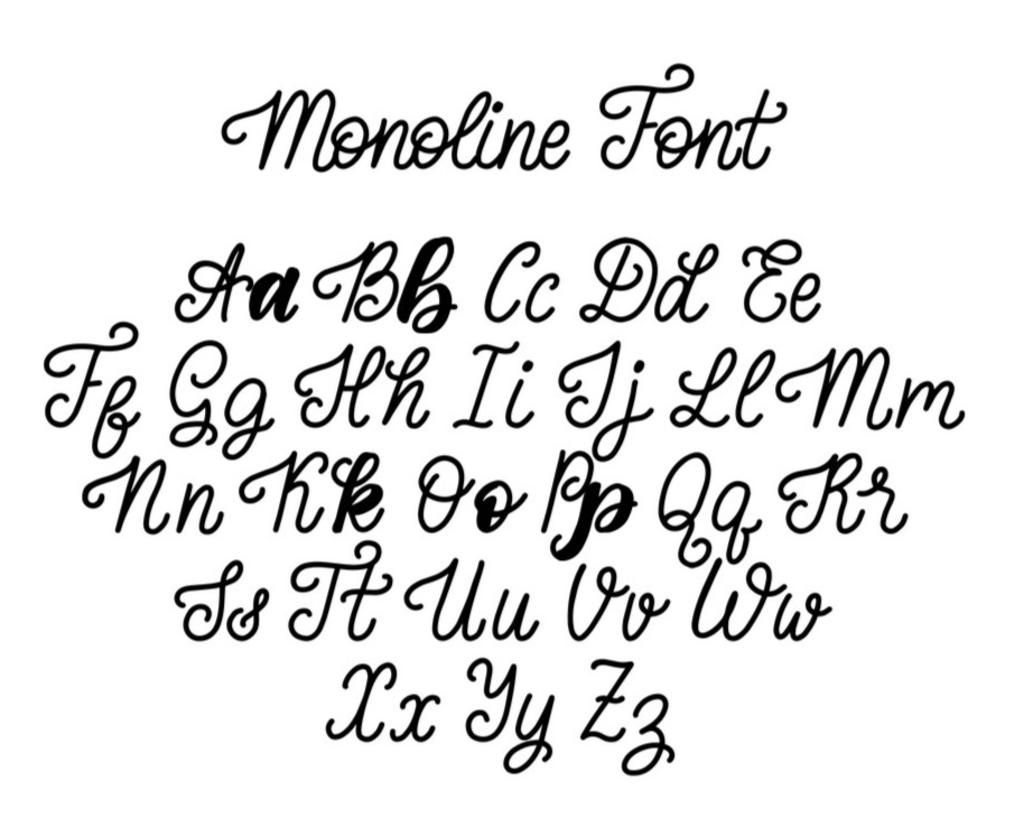 Monoline Font
Aa Bb Cc Dd Ee
Ff Gg Hh Ii Jj Ll Mm
Nn Kk Oo Pp Qq Rr
Ss Tt Uu Vv Ww
Xx Yy Zz